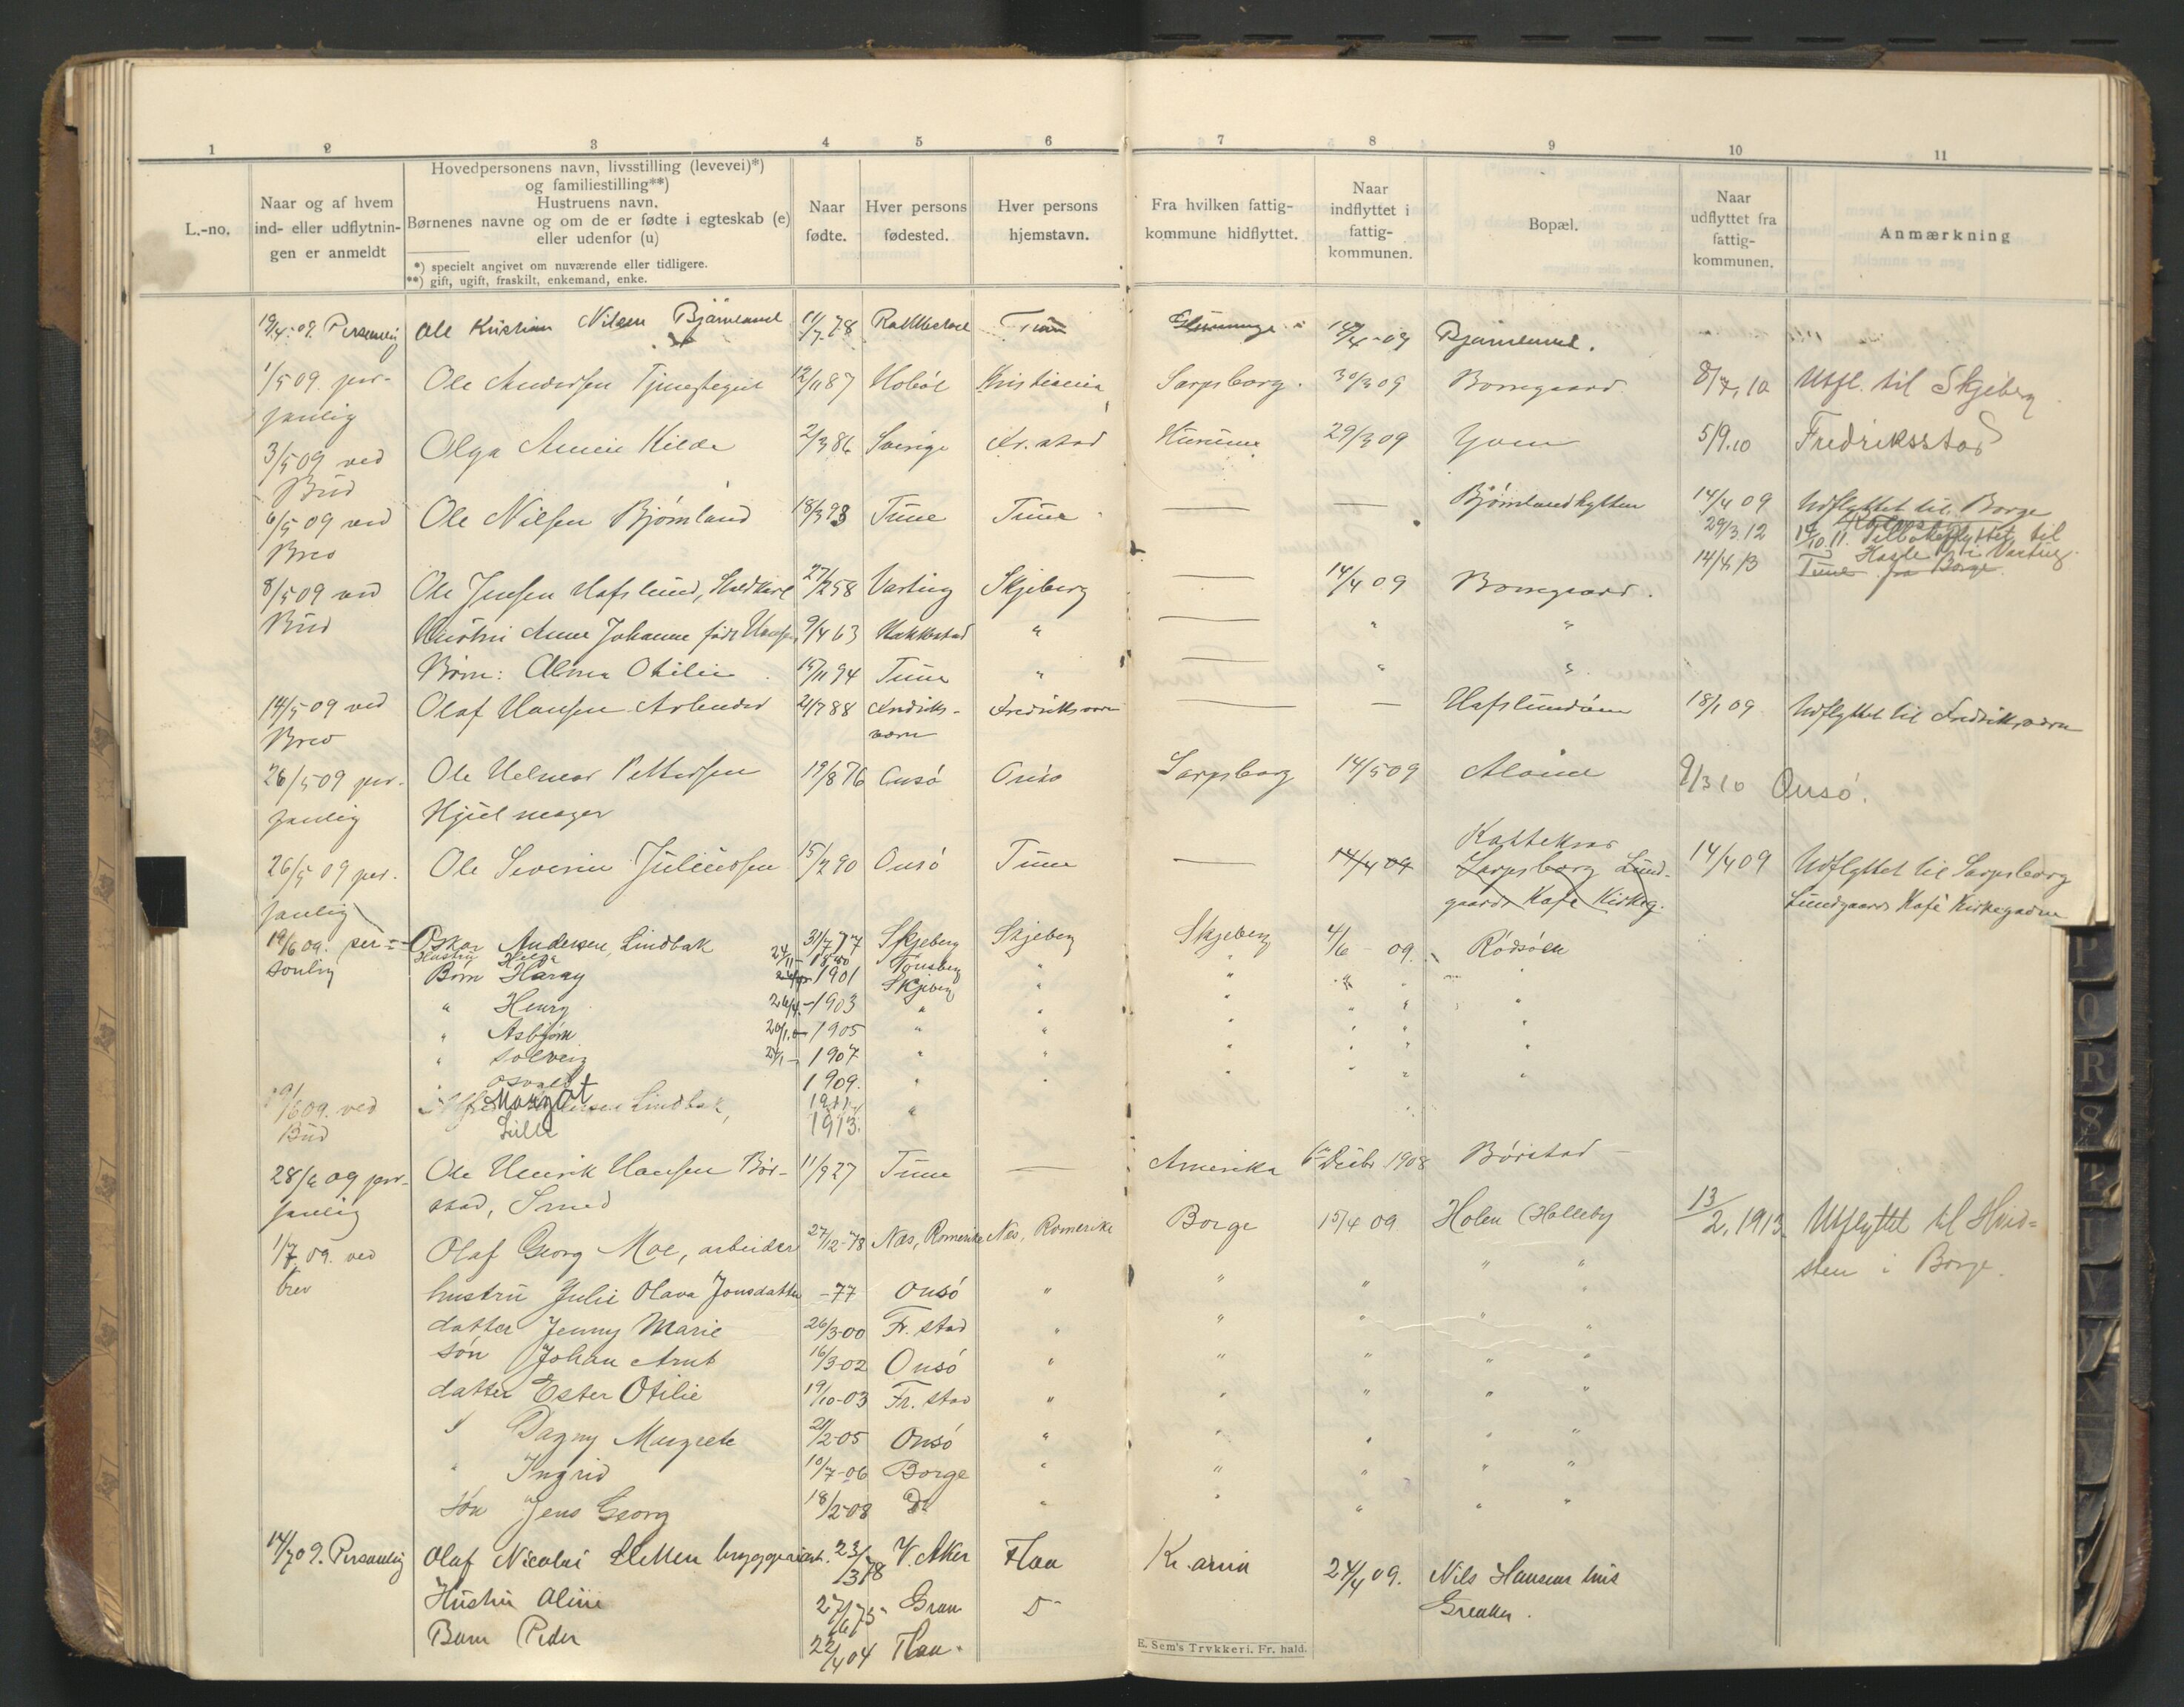 1 2 3 4 5 6 7 8 9 10 11
L.-no.
Naar og af hvem
ind- eller udflytnin-
gen er anmeldt
Hovedpersonens navn, livsstilling (levevei)*)
og familiestilling**)
Hustruens navn.
Børnenes navne og om de er fødte i egteskab (e)
eller udenfor (u)
*) specielt angivet om nuværende eller tidligere.
**) gift, ugift, fraskilt, enkemand, enke.
Naar
fødte.
Hver persons
fødested.
Hver persons
hjemstavn.
Fra hvilken fattig-
kommune hidflyttet.
Naar
indflyttet i
fattig-
kommunen.
Bopæl.
Naar
udflyttet fra
fattig-
kommunen.
Anmærkning
19/4-09. Personlig Ole Kristian Nilsen Bjørnland 11/7-78 Rakkestad Tune 14/4-09 Bjørnland.
1/5 09. per- Ole Andersen 12/11 87 Hobøl Kristiania Sarpsborg. 30/3 09 Borregaard 8/7, 10 Utfl. til Skjeberg
sonlig
3/5 09 ved Olga Kilde 2/3 86 Sverige Fr.stad 29/3 09 5/9.10 Fredriksstad
Bud
6/5 09 ved Ole Nilsen Bjørnland 18/3 93 Tune Tune — — Bjørnlandhytten 14/4 09 Udflyttet til Borge
Brev 29/3.12 14/10.11. Tilbakeflyttet til
14/4 13 Hasle i Varteig.
Tune fra Borge.
8/5 09 ved Ole Jensen Hafslund, 27/2 58 Varteig Skjeberg — 14/4 09 Borregaard.
Bud Hustru Anne Johanne født Hansen 9/4 63 Rakkestad " — " "
Børn: Alma Otilie 15/11 94 Tune " — " "
14/5 09 ved Olaf Hansen Arbeider 21/7 88 Fredriks- Fredriksværn — — Hafslundsøen 18/1 09 Udflyttet til Fredriksværn
Brev værn
26/5 09 per- Ole Helmer Pettersen 19/8 76 Onsø Onsø Sarpsborg 14/5 09 Alvim 9/3 10 Onsø.
sonlig Hjulmager
Kattekras
26/5 09 per- Ole Severin Juliussen 15/2 90 Onsø Tune — 14/4 09 Sarpsborg Lund- 14/4 09 Udflyttet til Sarpsborg
sonlig gaards Kafe Kirkeg. Lundgaards Kafe Kirkegaden
19/6 09. per- Oskar Andersen Lindbak 31/7 77 Skjeberg Skjeberg Skjeberg 4/6 09. Rødsøen
sonlig Hustru Helga 24/11- 1880 Tønsberg " "
Børn Harry 1901 Skjeberg " " "
" Henry 26/4-1903 " " " " "
" Asbjørn 20/1 1905 " " " " "
" Solveig 1907 " " " " "
Osvald 1909. " " " " "
/6 09. ved Margot Lindbak, 1911 "
Bud Lille 1913.
28/6 09 per- Ole Henrik Hansen Bør- 11/9 27 Tune — Amerika 6te Decbr 1908 Børstad
sonlig stad, Smed
1/7. 09. ved Olaf Georg Moe, arbeider 27/12-78 Næs, Romerike Næs, Romerike Borge 15/4 09 Holen (Halleby 13/2, 1913. Utflyttet til Hvid-
brev sten i Borge.
hustru Julie Olava Jonsdatter -77 Onsø " " " " "
datter Jenny Marie 26/3-00 Fr. stad " " " " "
søn Johan Arnt 16/3-02 Onsø " " " " "
datter Ester Otilie 19/10-03 Fr. stad " " " " "
" Dagny Margrete 21/2-05 Onsø " " " " "
" Ingrid 10/7-06 Borge " " " " "
søn Jens Georg 18/2-08 Do " " " " "
14/7 09. Personlig Olaf Nicolai 23/3 78 V. Aker Flaa Kr.ania 24/4 09. Nils Hansens hus
Hustru Aline 27/6 75 Gran D Greaker.
Barn Peder 22/4 04 Flaa
E. Sem's Trykkeri. Fr. hald.
P
Q
R
S
T
V
X
Y